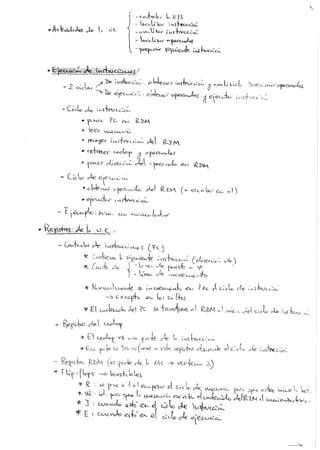 - controlar E/S
- localizar instrucción
• Actividades de la UC - analizar instrucción
- localizar operandos
- preparar siguiente instrucción
• Ejecución de instrucciones:
- 2 ciclos → De instrucción: obtener instrucción y analizarla. operandos
→ De ejecución: obtener operandos y ejecutar instrucción
- Ciclo de instrucción
• poner PC en RDM
• leer memoria
• recoger instrucción del RIM
• extraer codop y operandos
• poner dirección del operando en RDM
- Ciclo de ejecución
• obtener operando del RIM (o escribir en él)
• ejecutar instrucción
- Ejemplo:
• Registros de la U.C.:
- Contador de instrucciones (PC)
* Contiene la siguiente instrucción (dirección de)
* Consta de - línea de puesta a φ
- línea de incremento
* Normalmente se incrementa en 1 en el ciclo de instrucción
→ excepto en los saltos
* El contenido del PC se transfiere al RDM al inicio del ciclo de instrucción
- Registro del codop
* El codop es una parte de la instrucción
* este registro durante el ciclo de instrucción
- Registro RDM (es parte de la MC → ver tema 2)
- Flip-flops → biestables
* R: se pone a 1 al empezar el ciclo de
* W: id. para que la memoria escriba el contenido del RIM
* I: cuando esté en el ciclo de instrucción
* E: cuando esté en el ciclo de ejecución